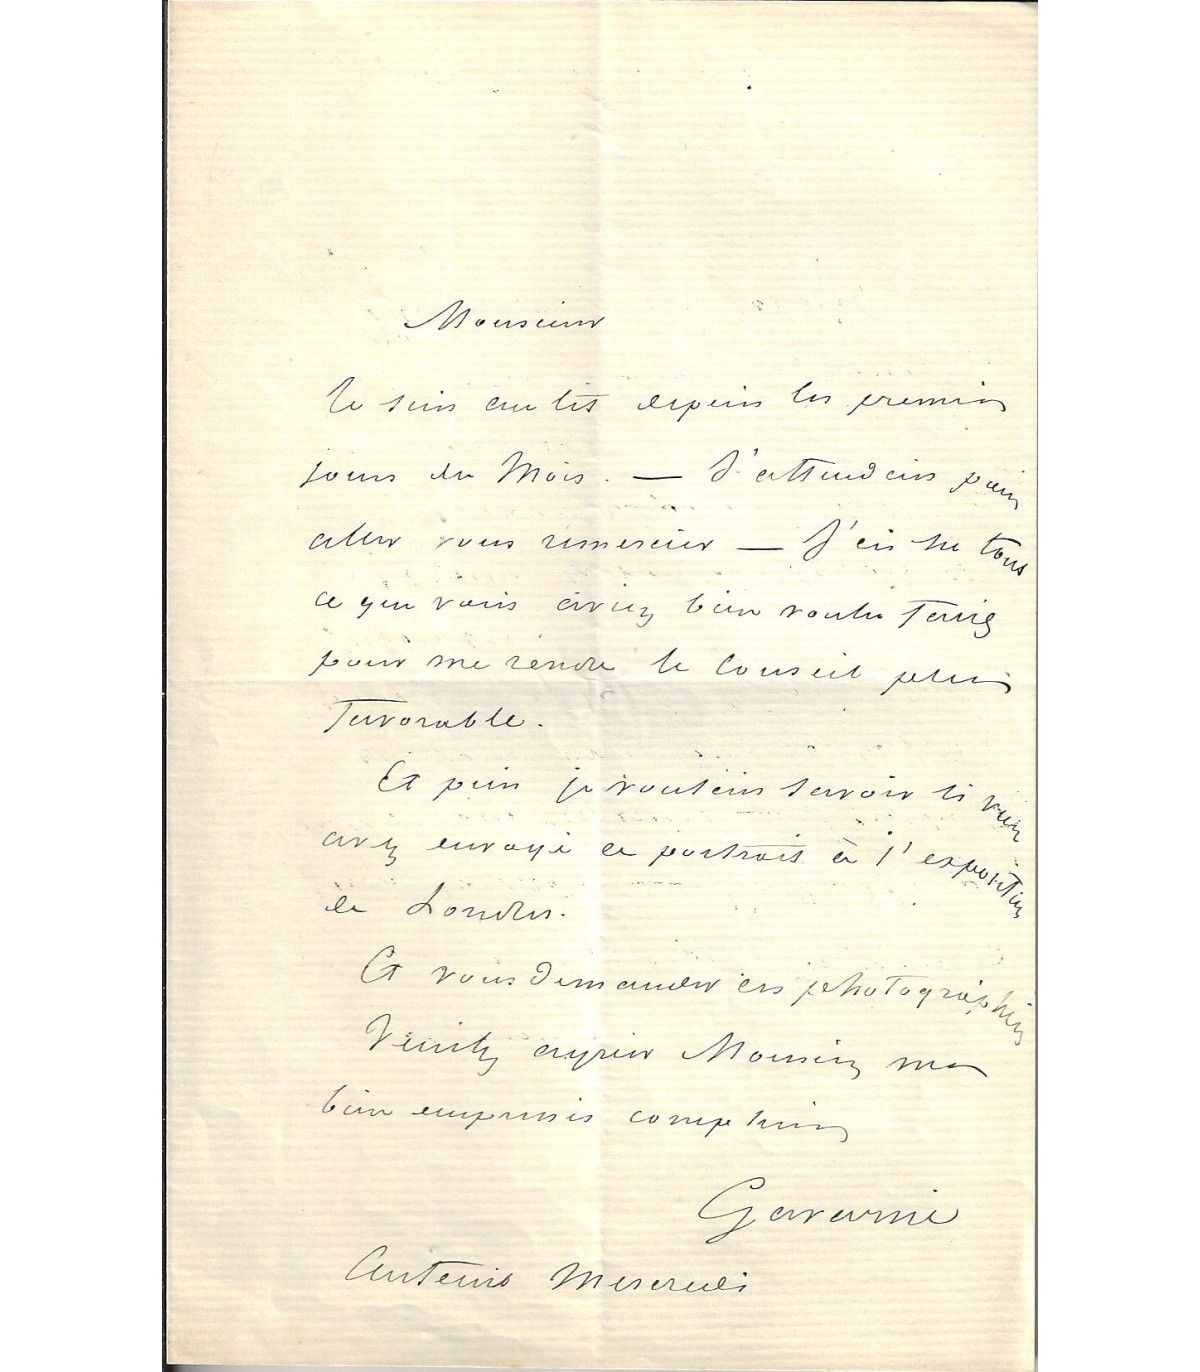 Monsieur
Je suis au lit depuis les premiers
jours du Mois. — J'attendais pour
aller vous remercier — J'ai su tout
ce que vous aviez bien voulu faire
pour me rendre le Conseil plus
favorable.
Et puis je voulais savoir si vous
avez envoyé ce portrait à l'exposition
de Londres.
Et vous demander des photographies
Veuillez agréer Monsieur mes
bien empressés compliments
Gavarni
Auteuil Mercredi